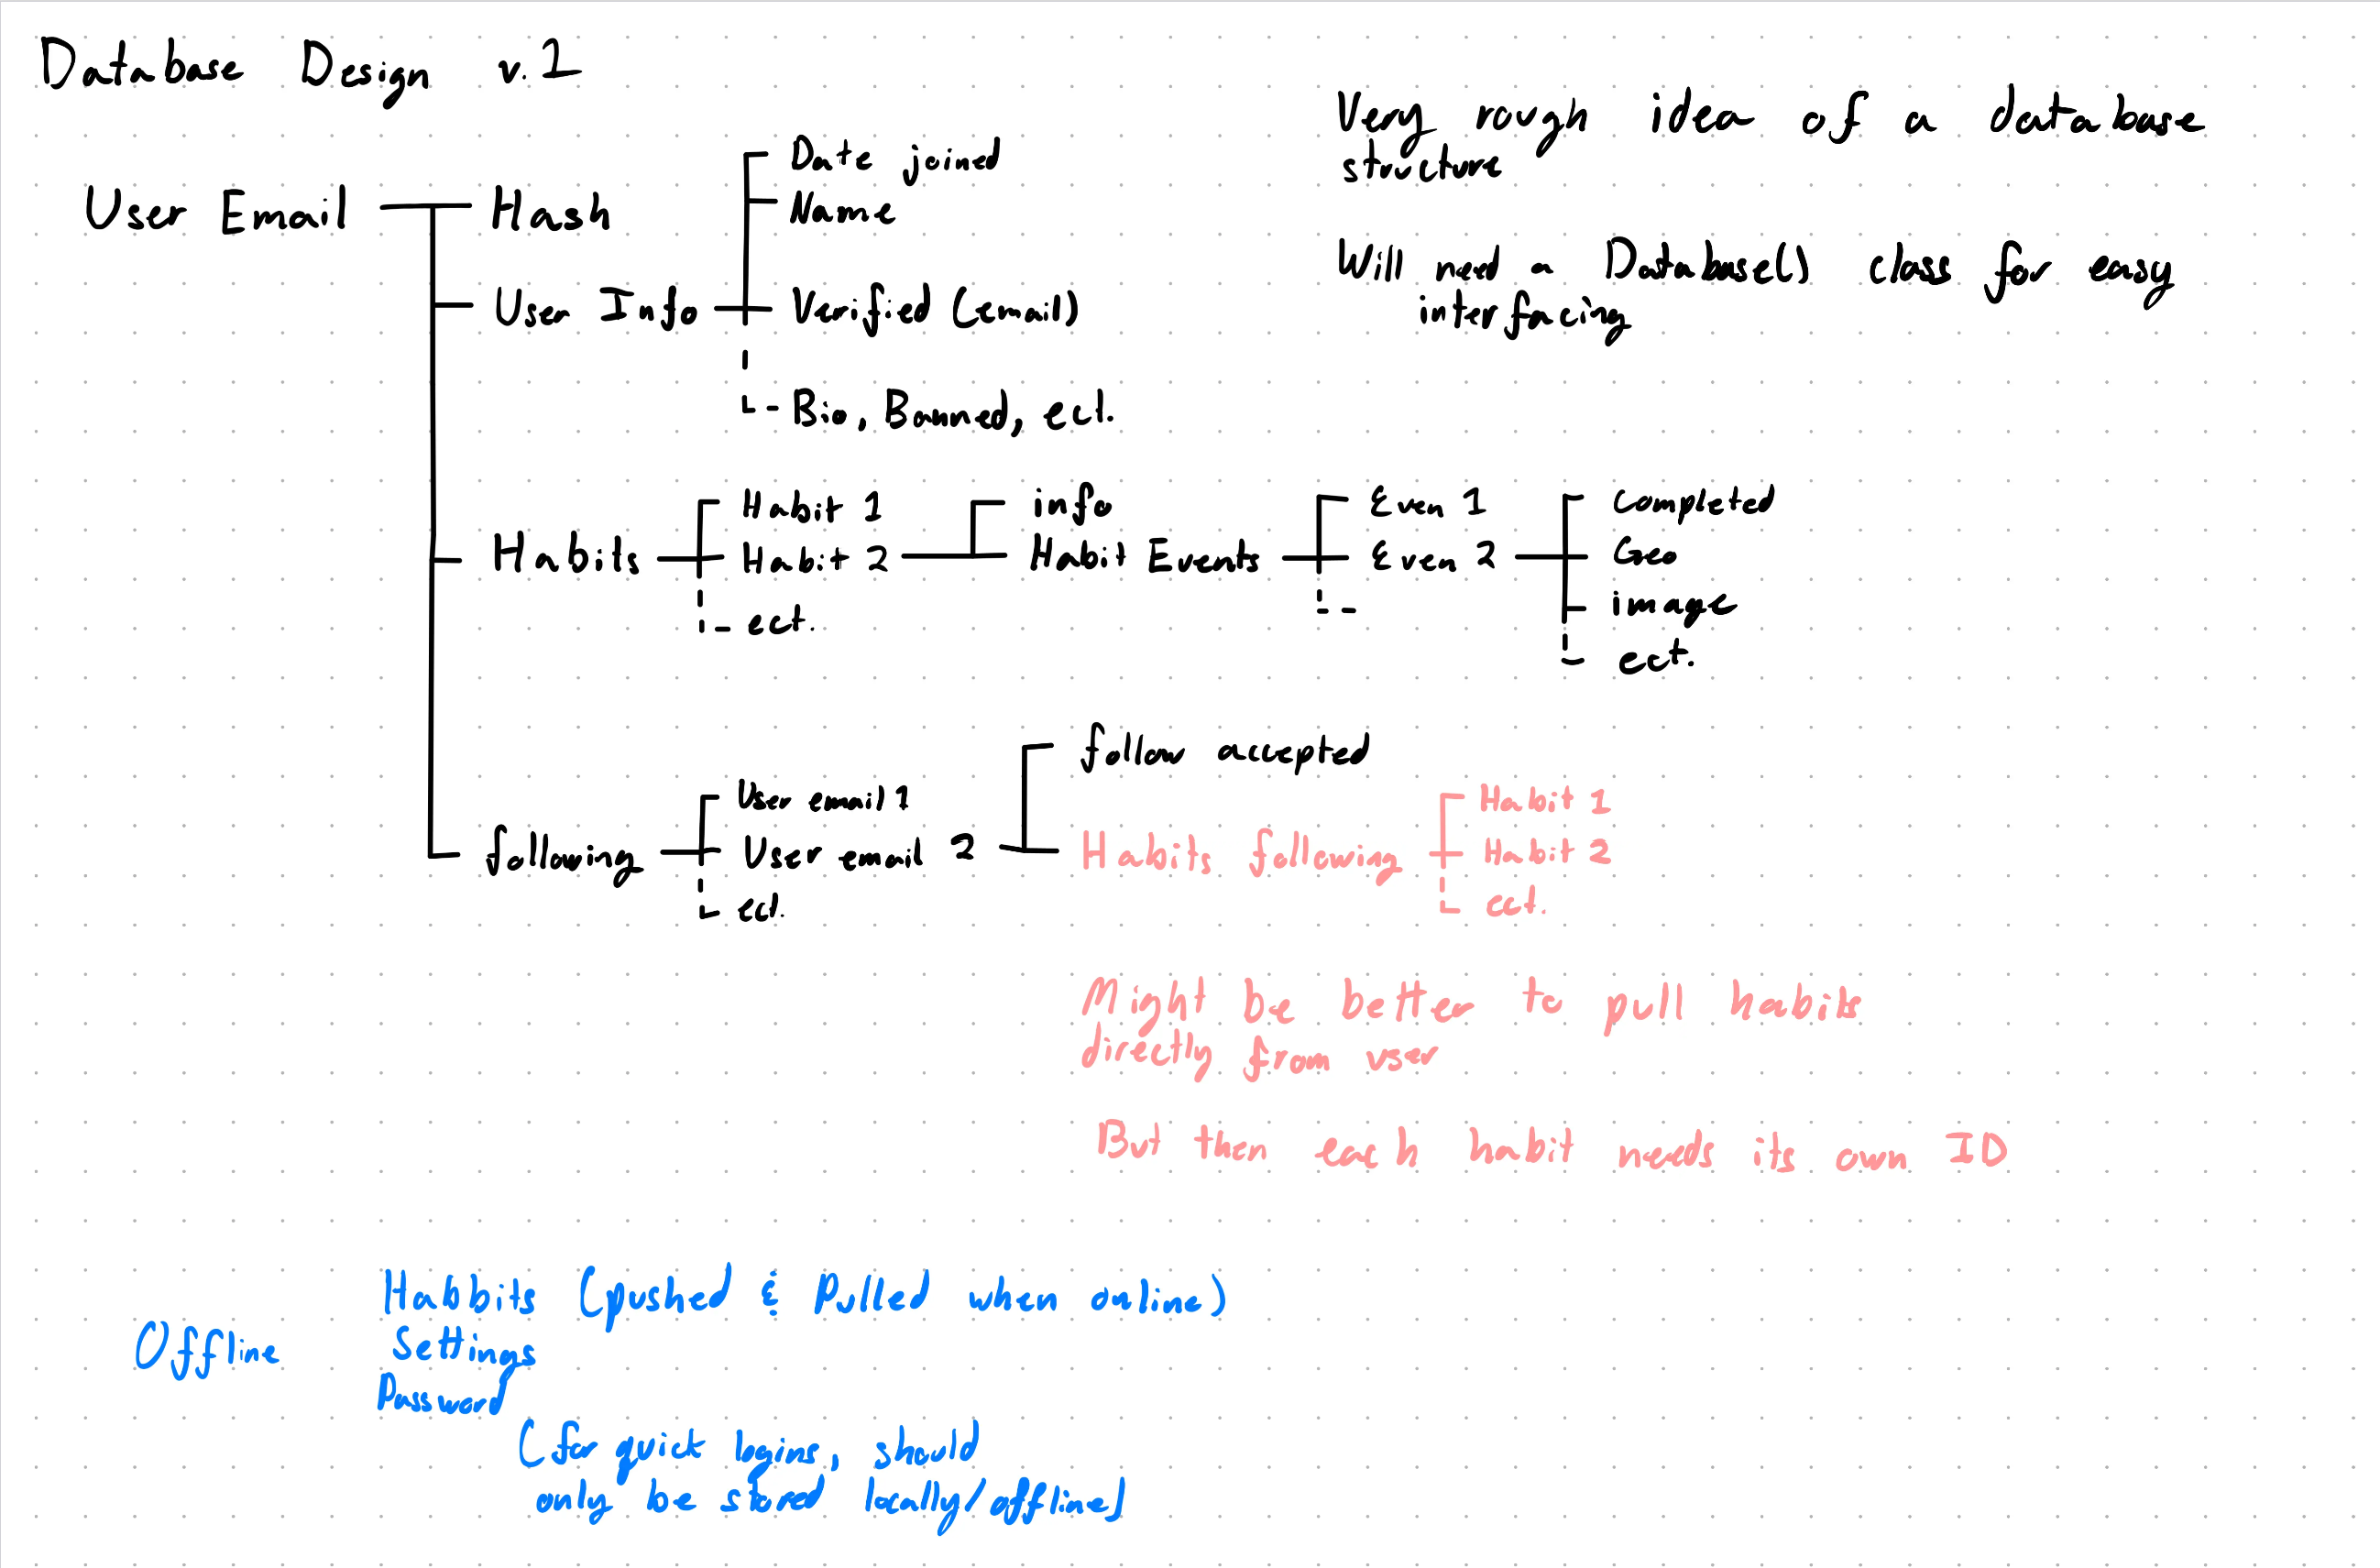 Database Design v.1
Very rough idea of a database
structure
Will need a Database() class for easy
interfacing
User Email
Hash
User Info
Date joined
Name
Verified (email)
Bio, Banned, ect.
Habits
Habit 1
Habit 2
ect.
info
Habit Events
Even 1
Even 2
Completed
Geo
image
ect.
following
User email 1
User email 2
ect.
follow accepted
Habits following
Habit 1
Habit 2
ect.
Might be better to pull habits
directly from user
But then each habit needs its own ID
Offline
Habbits (pushed & Pulled when online)
Settings
Password
(for quick logins, should
only be stored locally/offline)